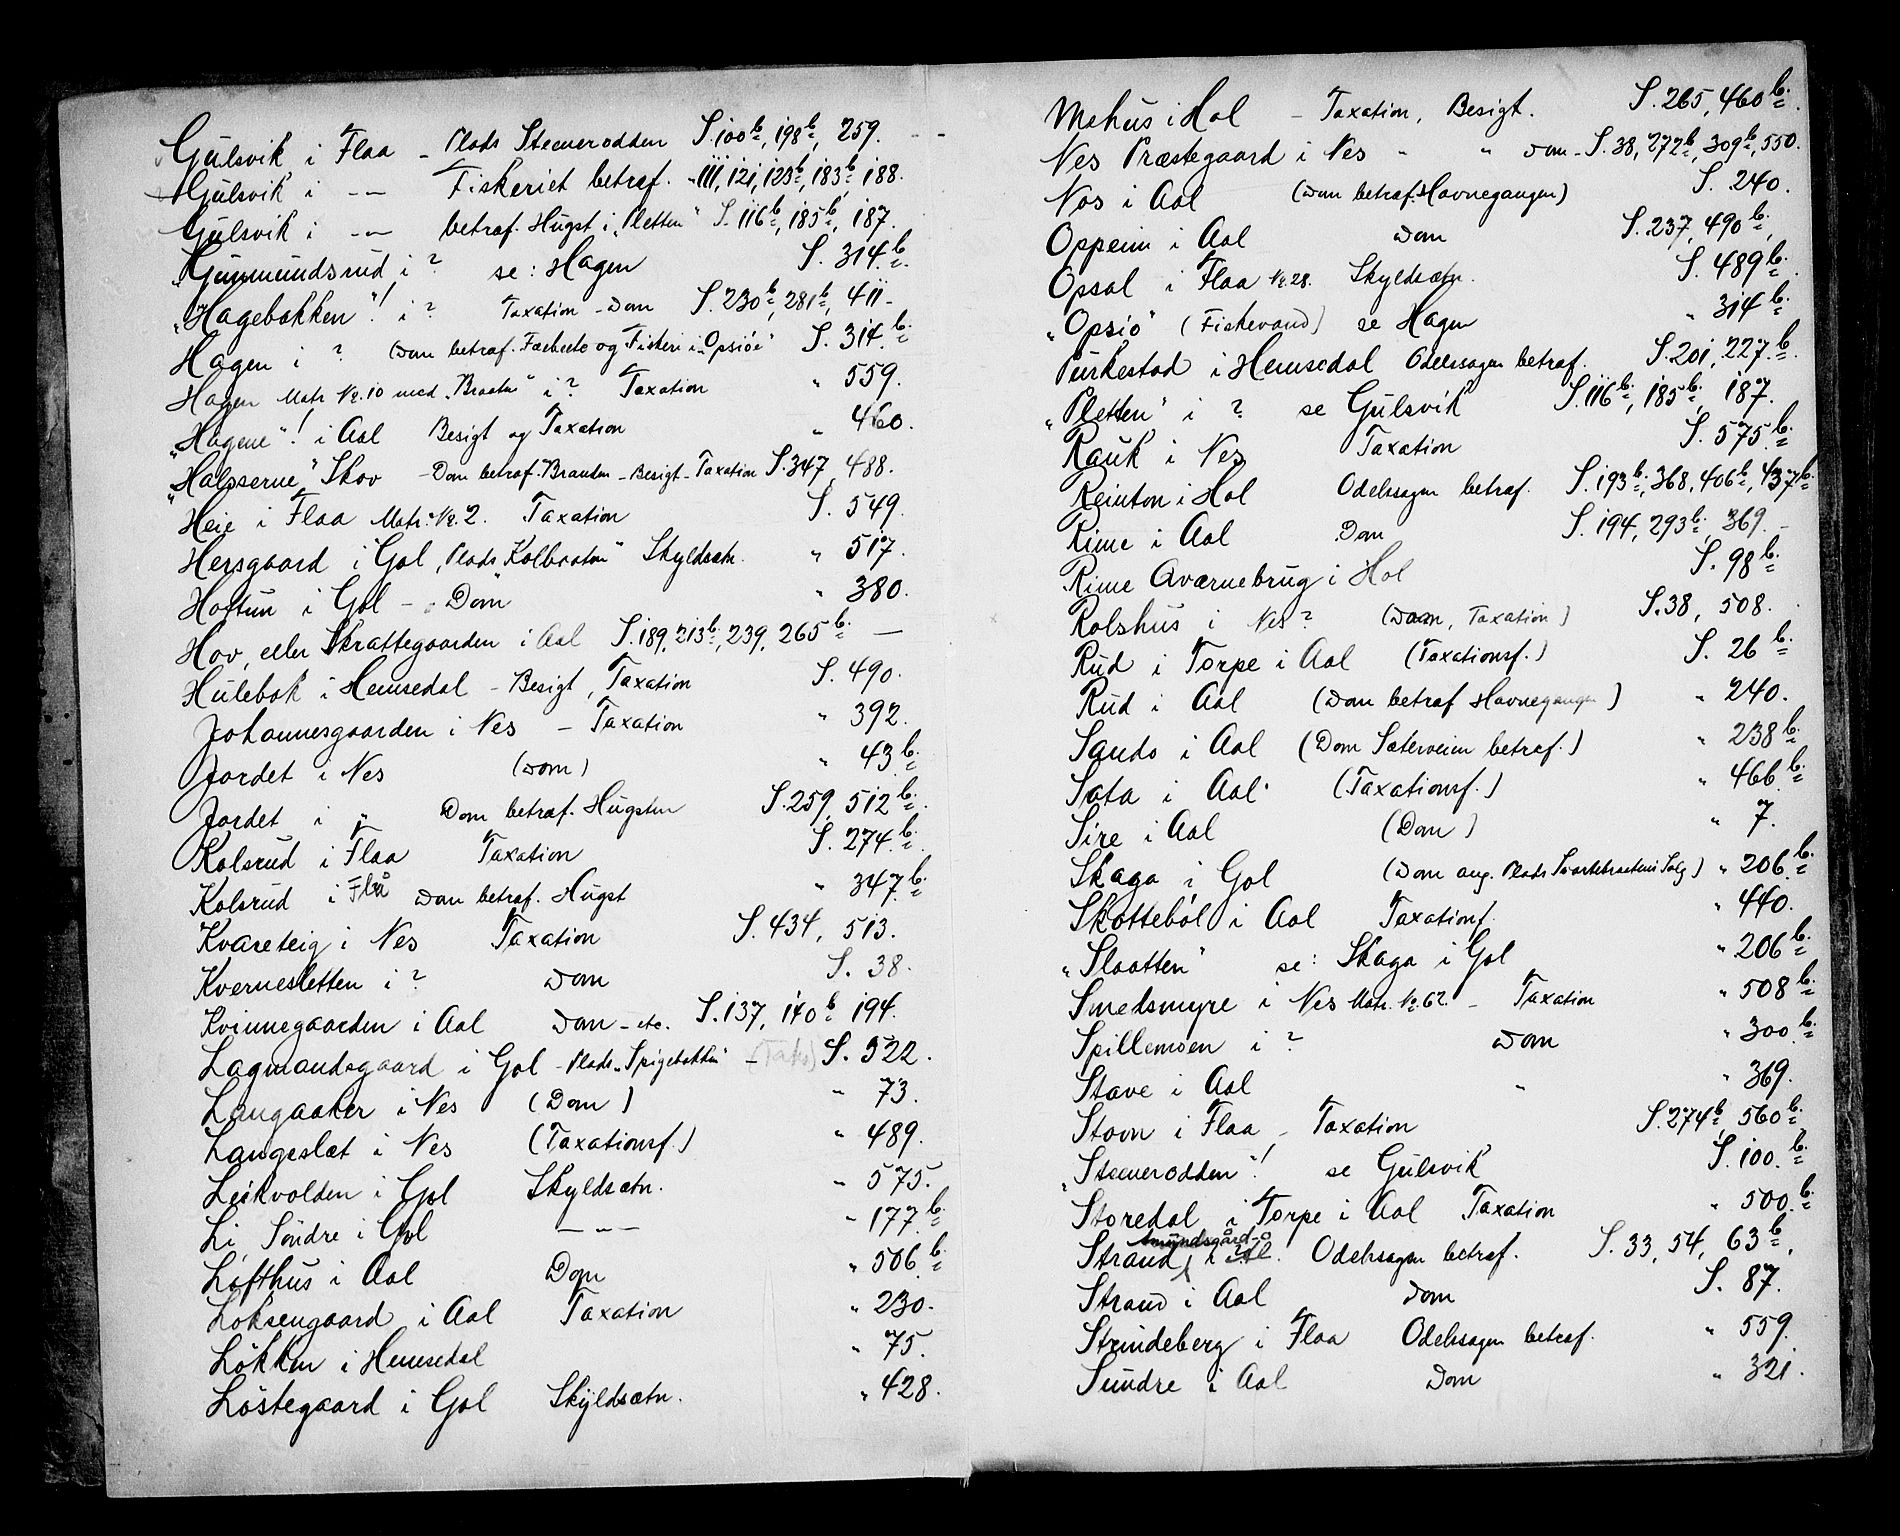 Gulsvik i Flaa – Plads Steenerodden S. 100b, 198b, 259. - -
Gulsvik i -"- Fiskeriet betræf. - 111, 121, 123b, 183b, 188.
Gulsvik i -"- betræf. Hugst i "Pletten" S. 116b, 185b, 187.
"Gunmundsrud i ? se: Hagen S. 314b.
"Hagebakken"! i ? Taxation – Dom S. 230b, 281b, 411 -
Hagen i ? (Dom betræf. Fæbeite og Fiskeri i "Opsiö" S. 314b.
Hagen Matr. No. 10 med "Braaten" i ? Taxation " 559.
"Hagene"! i Aal Besigt og Taxation " 460.
"Halsserne" Skov – Dom betræf. Branden – Besigt – Taxation S. 347, 488.
Heie i Flaa Matr. No. 2. Taxation S. 549.
Hersgaard i Gol, Plads Kolbraaten" Skyldsætn. " 517.
Hoftun i Gol – Dom " 380.
Hov, eller Skrattegaarden i Aal S. 189, 213b, 239, 265b. —
Hulebak i Hemsedal – Besigt, Taxation S. 490.
Johannesgaarden i Nes – Taxation " 392.
Jordet i Nes (Dom) " 43b.
Jordet i " Dom betræf. Hugsten S. 259, 512b.
Kolsrud i Flaa Taxation S. 274b.
Kolsrud i Flå Dom betræf. Hugst " 347b.
Kvareteig i Nes Taxation S. 434, 513.
Kvernesletten i ? Dom S. 38.
Kvinnegaarden i Aal Dom – etc. S. 137, 140b 194.
Lagmandsgaard i Gol – Plads "Spigebakken" – (Takst) S. 522.
Langaaker i Nes (Dom) " 73.
Langeslæt i Nes (Taxationsf.) " 489.
Leikvolden i Gol Skyldsætn. " 575.
Li, Söndre i Gol — " — " 177b.
Lofthus i Aal Dom " 506b.
Loksengaard i Aal Taxation " 230.
Lökken i Hemsedal " 75.
Löstegaard i Gol Skyldsætn. " 428.
Mehus i Hol – Taxation, Besigt. S. 265, 460b.
Nes Præstegaard i Nes - " Dom – S. 38, 272b, 309b, 550.
Nos i Aal (Dom betræf. Havnegangen) S. 240.
Oppeim i Aal Dom S. 237, 490b.
Opsal i Flaa No. 28. Skyldsætn. S. 489b.
"Opsiö" (Fiskevand) se Hagen " 314b.
Purkestad i Hemsedal Odelssagen betræf. S. 201, 227b.
"Pletten" i ? se Gulsvik S. 116b, 185b, 187.
Rauk i Nes Taxation S. 575b.
Reinton i Hol Odelssagen betræf. S. 193b, 368, 406b, 437b.
Rime i Aal Dom S. 194, 293b, 369. -
Rime Qværnebrug i Hol S. 98b.
Rolshus i Nes? (Dom, Taxation) S. 38, 508.
Rud i Torpe i Aal (Taxationsf.) S. 26b.
Rud i Aal (Dom betræf Havnegangen) " 240.
Sando i Aal (Dom Sæterveien betræf.) " 238b.
Sata i Aal (Taxationsf.) " 466b.
Sire i Aal (Dom) " 7.
Skaga i Gol (Dom ang. Plads Svartebraatens Salg) " 206b.
Skottebøl i Aal Taxationsf. " 440.
"Slaatten" se: Skaga i Gol " 206b.
Smedsmyre i Nes Matr. No. 62. – Taxation " 508b.
Spillemoen i ? Dom " 300b.
Stave i Aal " " 369.
Stovn i Flaa – Taxation S. 274b, 560b.
"Steenerodden"! se Gulsvik S. 100b.
Storedal i Torpe i Aal Taxation " 500b.
Strand Amundsgård i Ål. Odelssagen betræf. S. 33, 54, 63b.
Strand i Aal Dom S. 87.
Strindeberg i Flaa Odelssagen betræf. " 559.
Sundre i Aal Dom " 321.